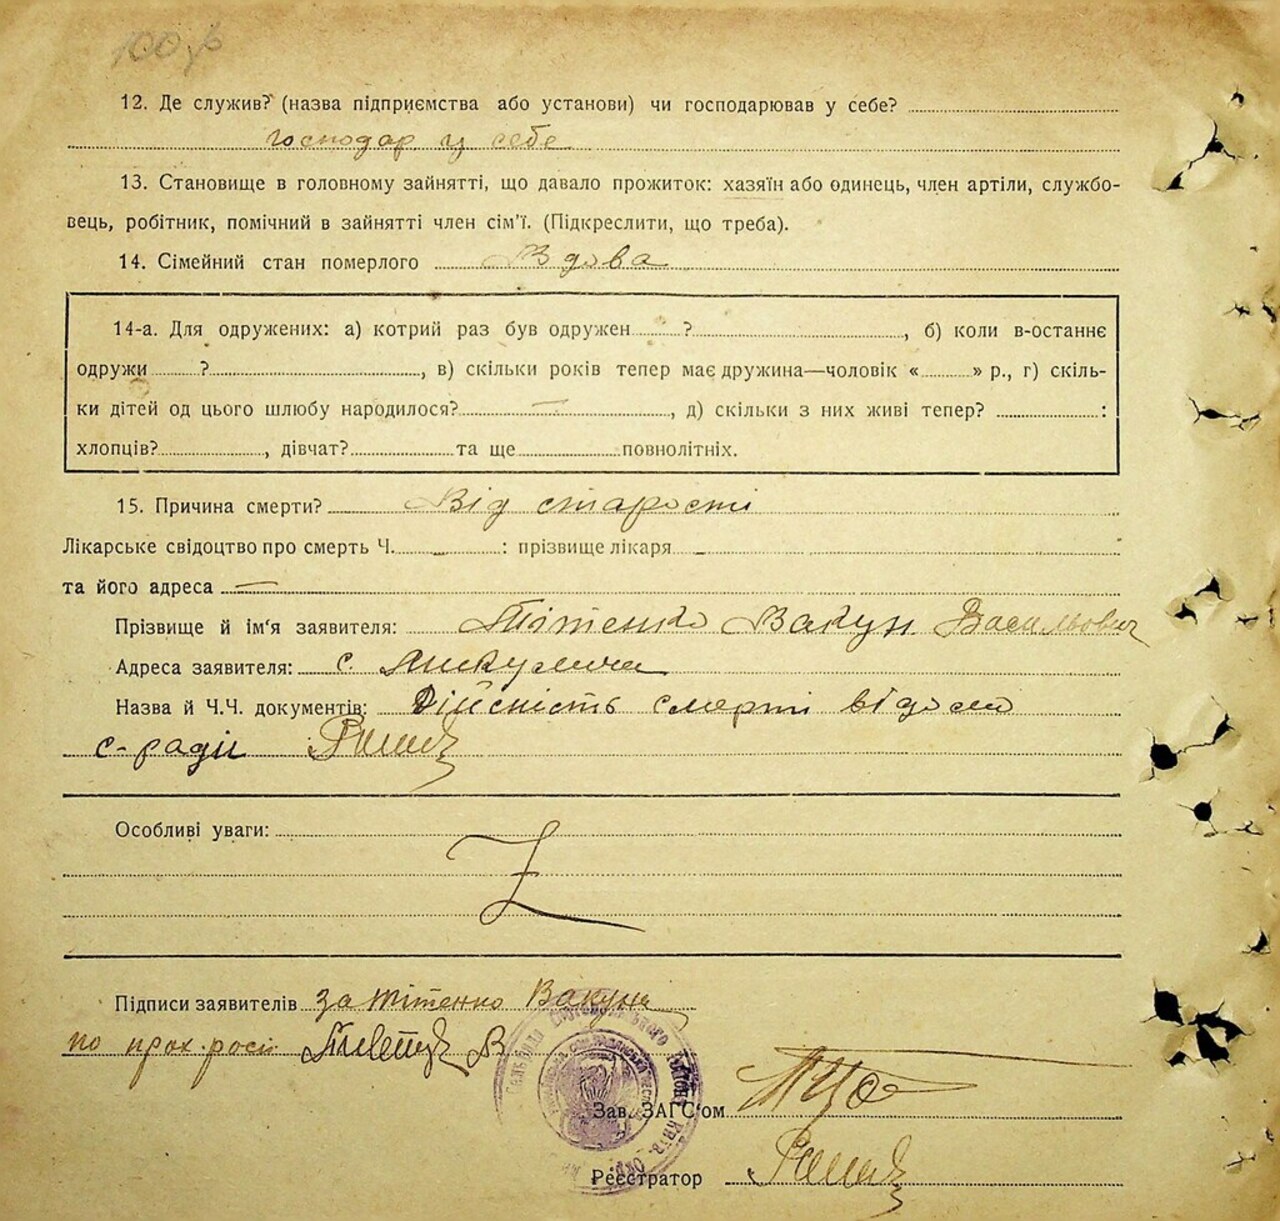 12. Де служив? (назва підприємства або установи) чи господарював у себе?
господар у себе
13. Становище в головному зайнятті, що давало прожиток: хазяїн або одинець, член артіли, службо-
вець, робітник, помічний в зайнятті член сім’ї. (Підкреслити, що треба).
14. Сімейний стан померлого Вдова
14-а. Для одружених: а) котрий раз був одружен ?, б) коли в-останнє
одружи ?, в) скільки років тепер має дружина—чоловік « » р., г) скіль-
ки дітей од цього шлюбу народилося? —, д) скільки з них живі тепер? :
хлопців?, дівчат? та ще повнолітніх.
15. Причина смерти? Від старости
Лікарське свідоцтво про смерть Ч. — : прізвище лікаря —
та його адреса —
Прізвище й ім'я заявителя: Тітенко Вакул Васильович
Адреса заявителя: с. Микуличі
Назва й Ч.Ч. документів: Дійсність смерті відомо
с-раді
Особливі уваги: Z
Підписи заявителів за Тітенко Вакула
по прох. росп
Зав. ЗАГС'ом
Реєстратор